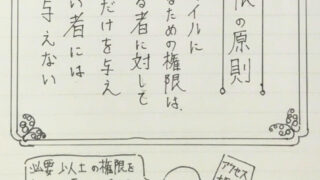 限の原則
イルに
るための権限は、
る者に対して
だけを与え
い者には
与えない
必要以上の権限を
アクセス